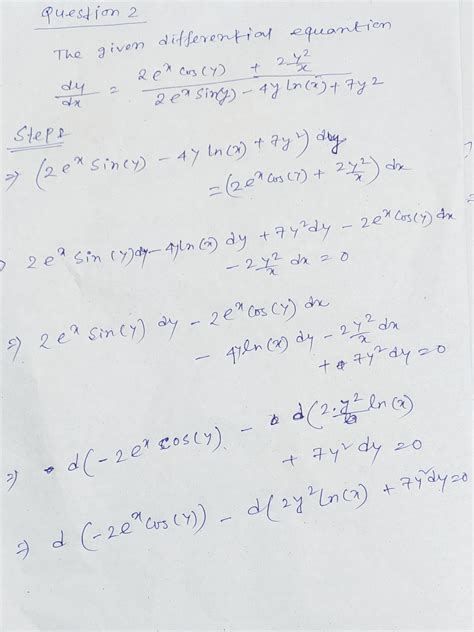 Question 2
The given differential equantion
dy/dx = (2e^x cos(y) + 2y^2/x) / (2e^x sin(y) - 4y ln(x) + 7y2)
Steps
⇒ (2e^x sin(y) - 4y ln(x) + 7y^2) dy
= (2e^x cos(y) + 2y^2/x) dx
2e^x sin(y)dy - 4y ln(x) dy + 7y^2 dy - 2e^x cos(y) dx
- 2y^2/x dx = 0
⇒ 2e^x sin(y) dy - 2e^x cos(y) dx
- 4y ln(x) dy - 2y^2/x dx
+ 7y^2 dy = 0
⇒ d(-2e^x cos(y) - d(2·y^2 ln(x)
+ 7y^2 dy = 0
⇒ d(-2e^x cos(y)) - d(2y^2 ln(x) + 7y^2 dy = 0